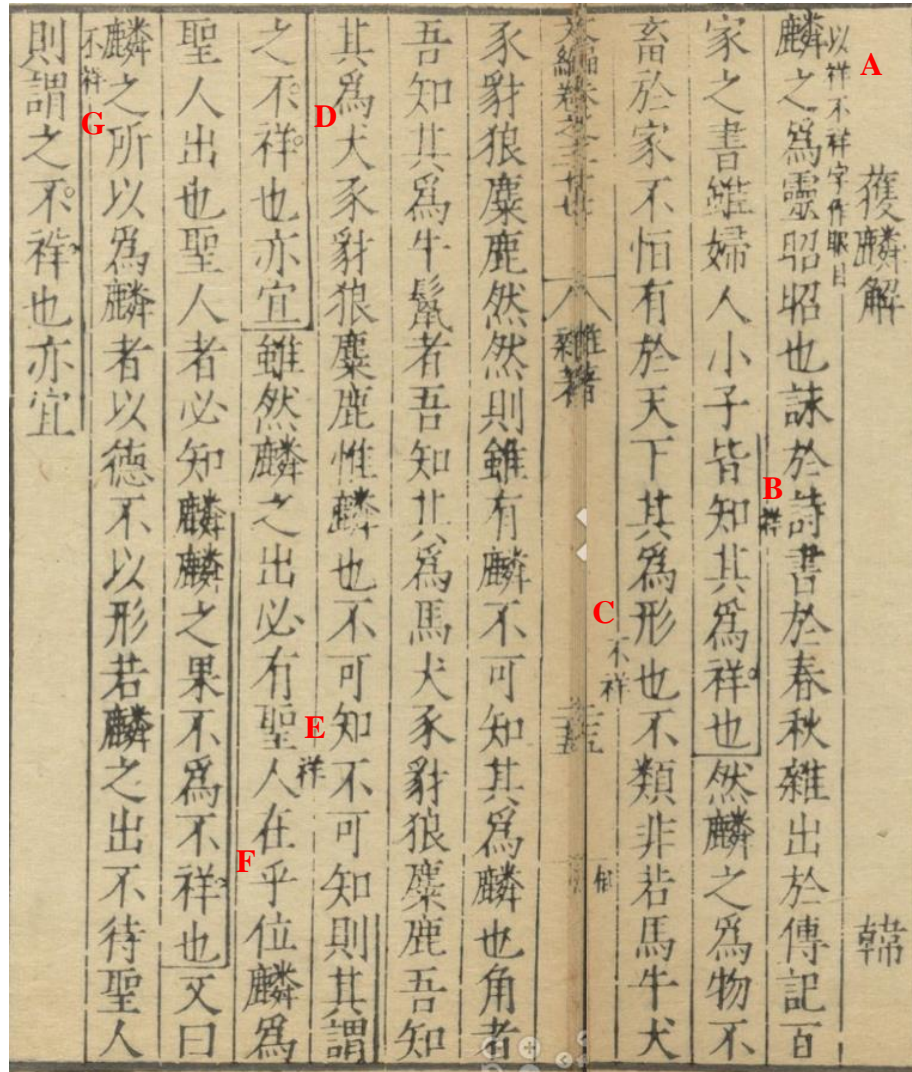 獲麟解 韓
A
以祥不祥字作眼目
麟之爲靈昭昭也詠於詩書於春秋雜出於傳記百
B
祥
家之書雖婦人小子皆知其爲祥也然麟之爲物不
C
不祥
畜於家不恒有於天下其爲形也不類非若馬牛犬
八
雜著
豕豺狼麋鹿然然則雖有麟不可知其爲麟也角者
吾知其爲牛鬣者吾知其爲馬犬豕豺狼麋鹿吾知
其爲犬豕豺狼麋鹿惟麟也不可知不可知則其謂
D
E
祥
之不祥也亦宜雖然麟之出必有聖人在乎位麟爲
F
聖人出也聖人者必知麟麟之果不爲不祥也又曰
麟之所以爲麟者以德不以形若麟之出不待聖人
G
不祥
則謂之不祥也亦宜